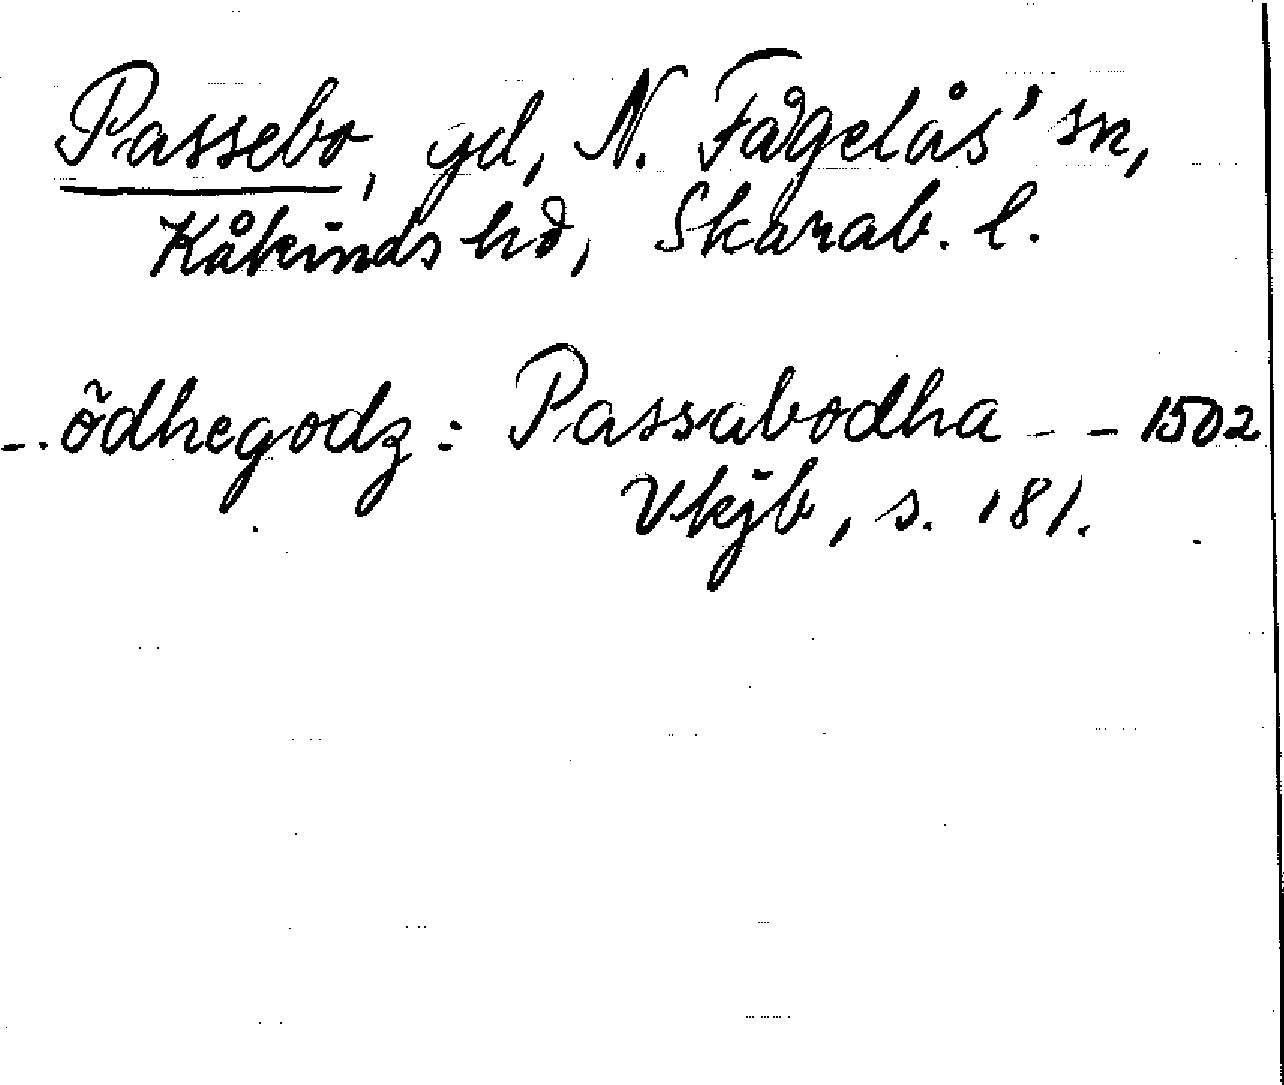 Passebo, gd, N. Fågelås' sn,
Kåkinds hd, Skarab. l.
-. ödhegodz: Passabodha - - 1502
Vkjb, s. 181.